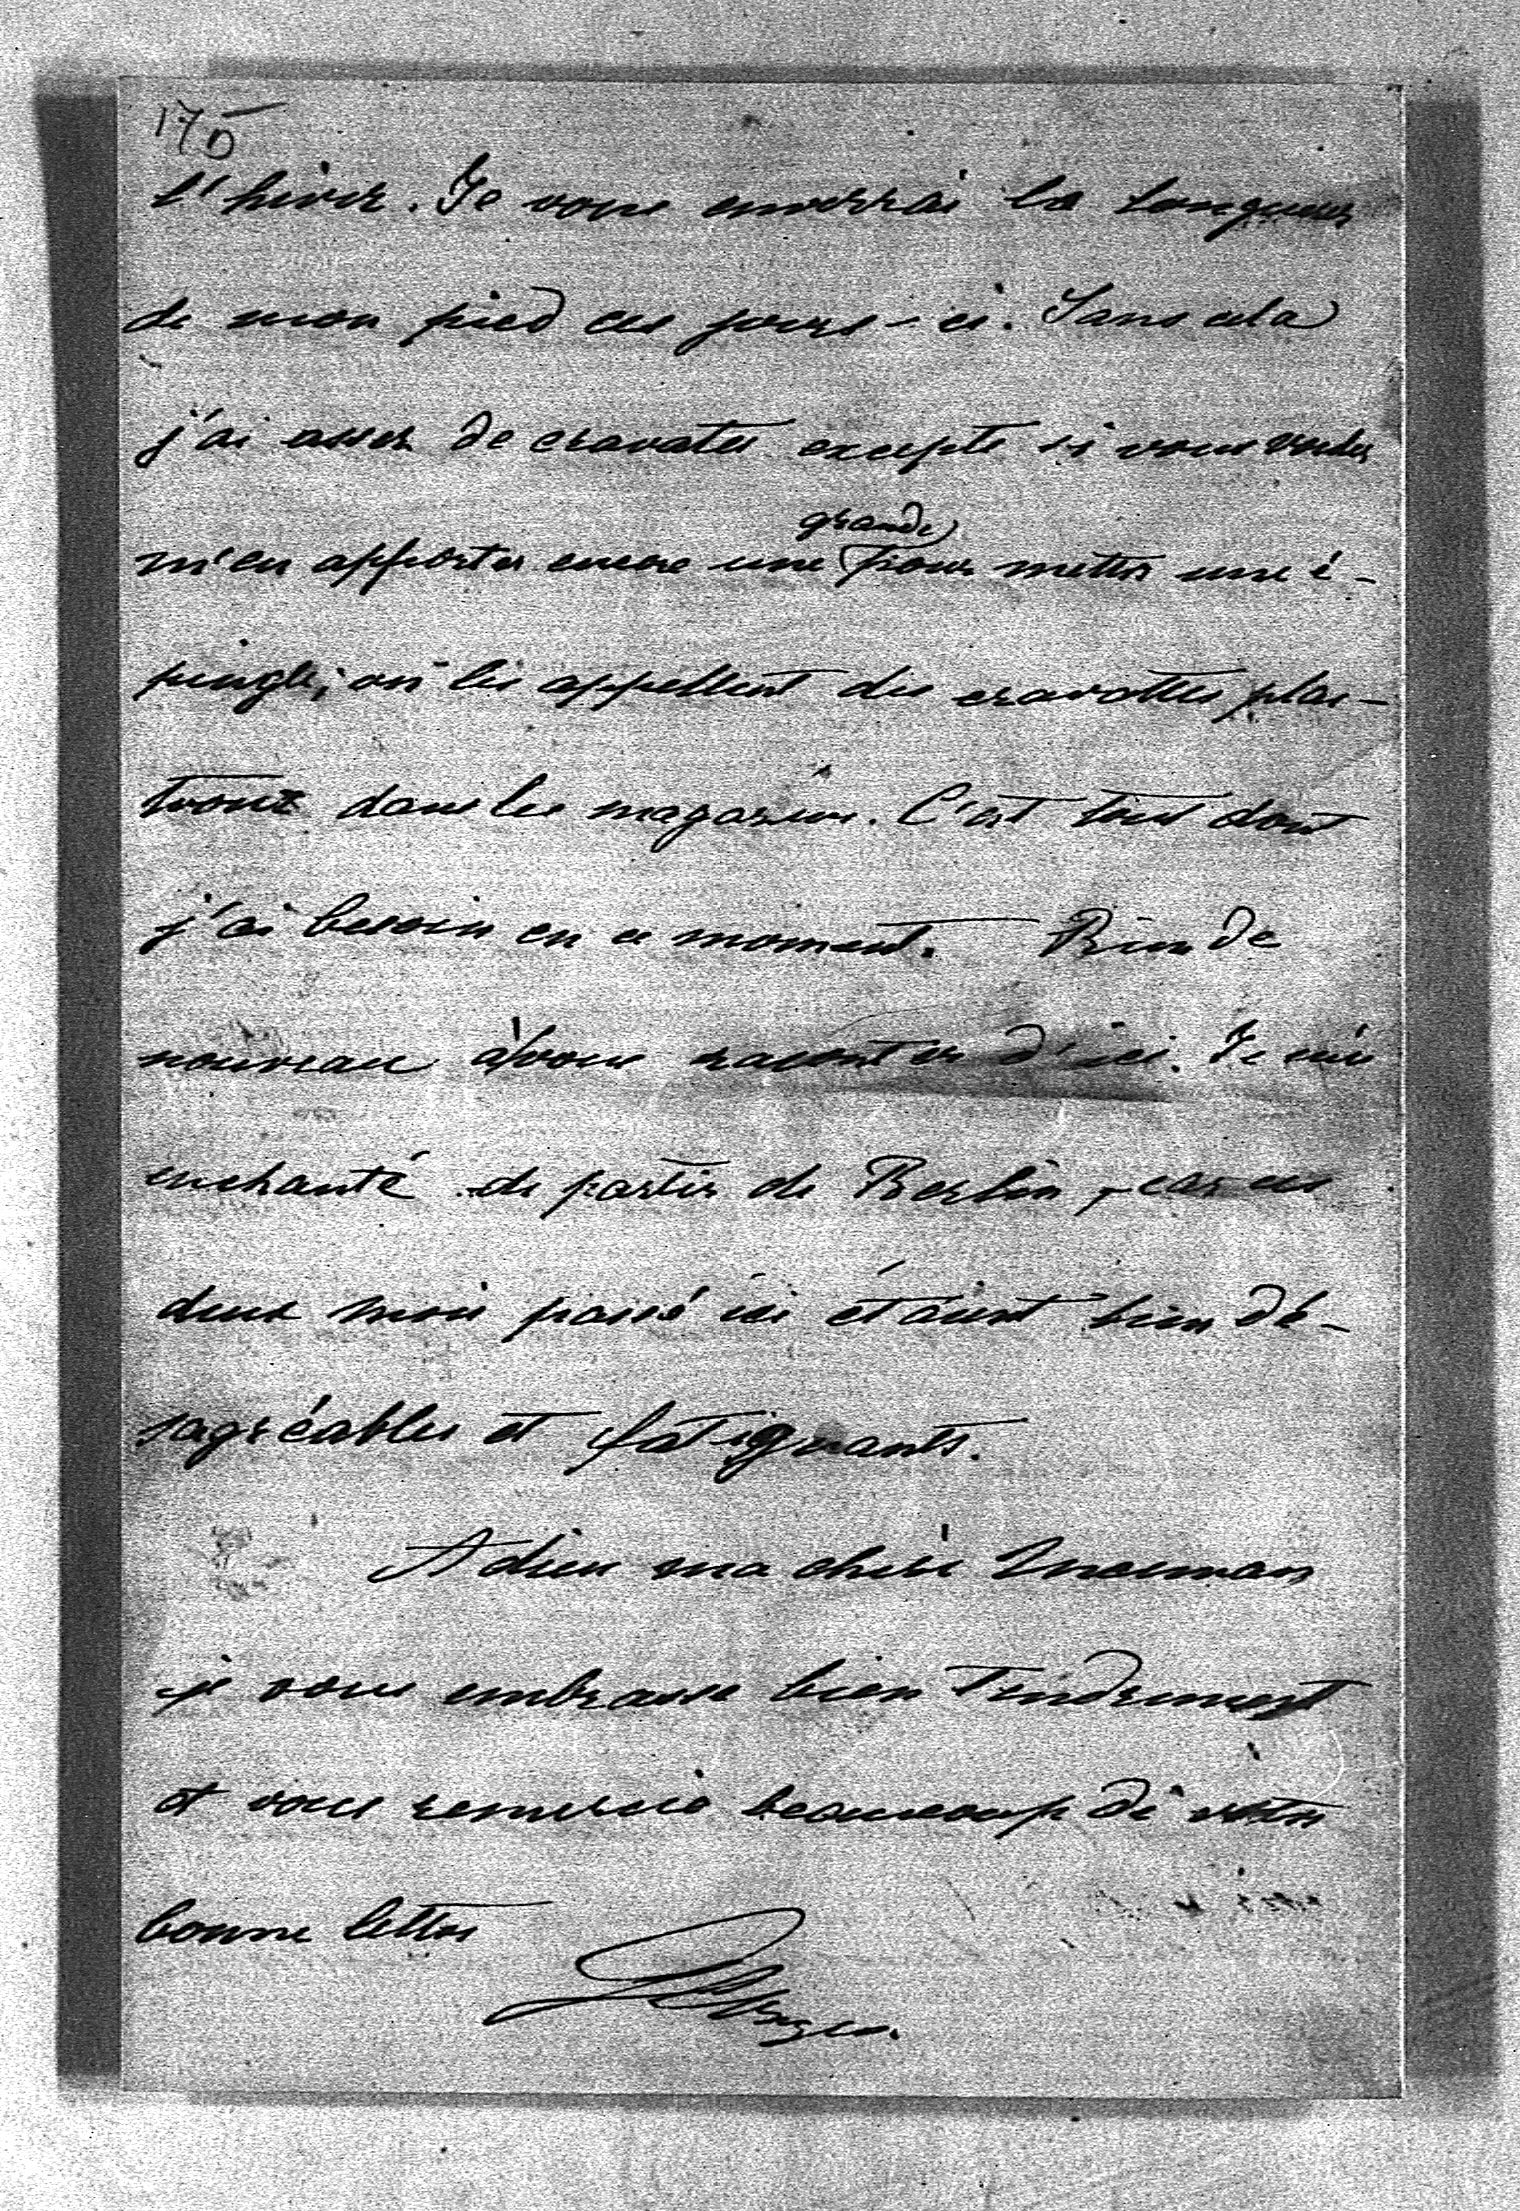 175
l'hiver. Je vous enverrai la longueur
de mon pied ces jours-ci. Sans cela
j'ai assez de cravates excepté si vous voulez
m'en apporter encore une grande pour mettre une é-
pingle; on les appellent des cravattes plas-
trons dans les magasins. C'est tout dont
j'ai besoin en ce moment. Rien de
nouveau à vous raconter d'ici. Je suis
enchanté de partir de Berlin, car ces
deux mois passé ici étaient bien dé-
sagréables et fatiguants.
Adieu ma chère Maman
je vous embrasse bien tendrement
et vous remercie beaucoup de votre
bonne lettre